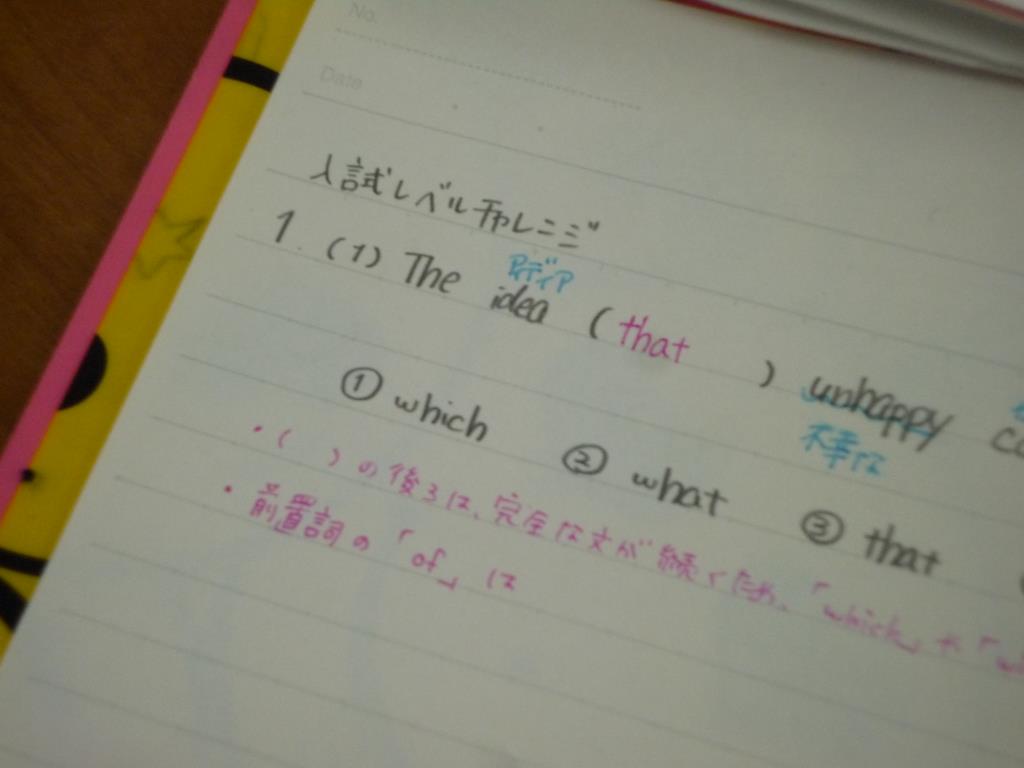 No.
Date
入試レベルチャレンジ
アイディア
1. (1) The idea ( that ) unhappy
不幸な
① which ② what ③ that
・( )の後ろは、完全な文が続くため、「which」や「
・前置詞の「of」は